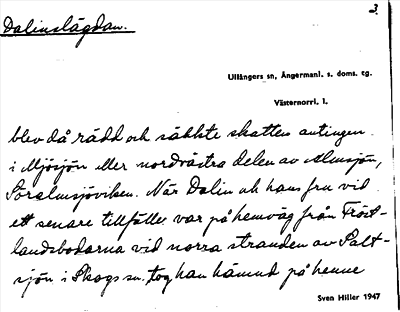 3.
Dalinslägdan.
Ullångers sn, Ångermanl. s. doms. tg.
Västernorrl. l.
blev då rädd och sänkte skatten antingen
i Mjösjön eller nordvästra delen av Almsjön,
Storalmsjöviken. När Dalin och hans fru vid
ett senare tillfälle var på hemväg från Tröst-
landsbodarna vid norra stranden av Salt-
sjön i Skogs sn. tog han hämnd på henne
Sven Hiller 1947